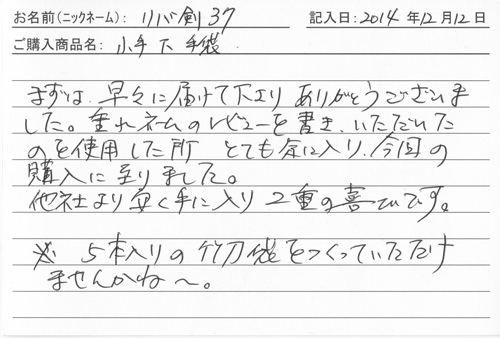 お名前(ニックネーム): リバ剣37 記入日: 2014年12月12日
ご購入商品名: 小手下手袋
まずは、早々に届けて下さり ありがとうございま
した。垂れネームのレビューを書き、いただいた
のを使用した所 とても気に入り、今回の
購入に至りました。
他社より安く手に入り 2重の喜びです。
※ 5本入りの竹刀袋をつくっていただけ
ませんかね〜。